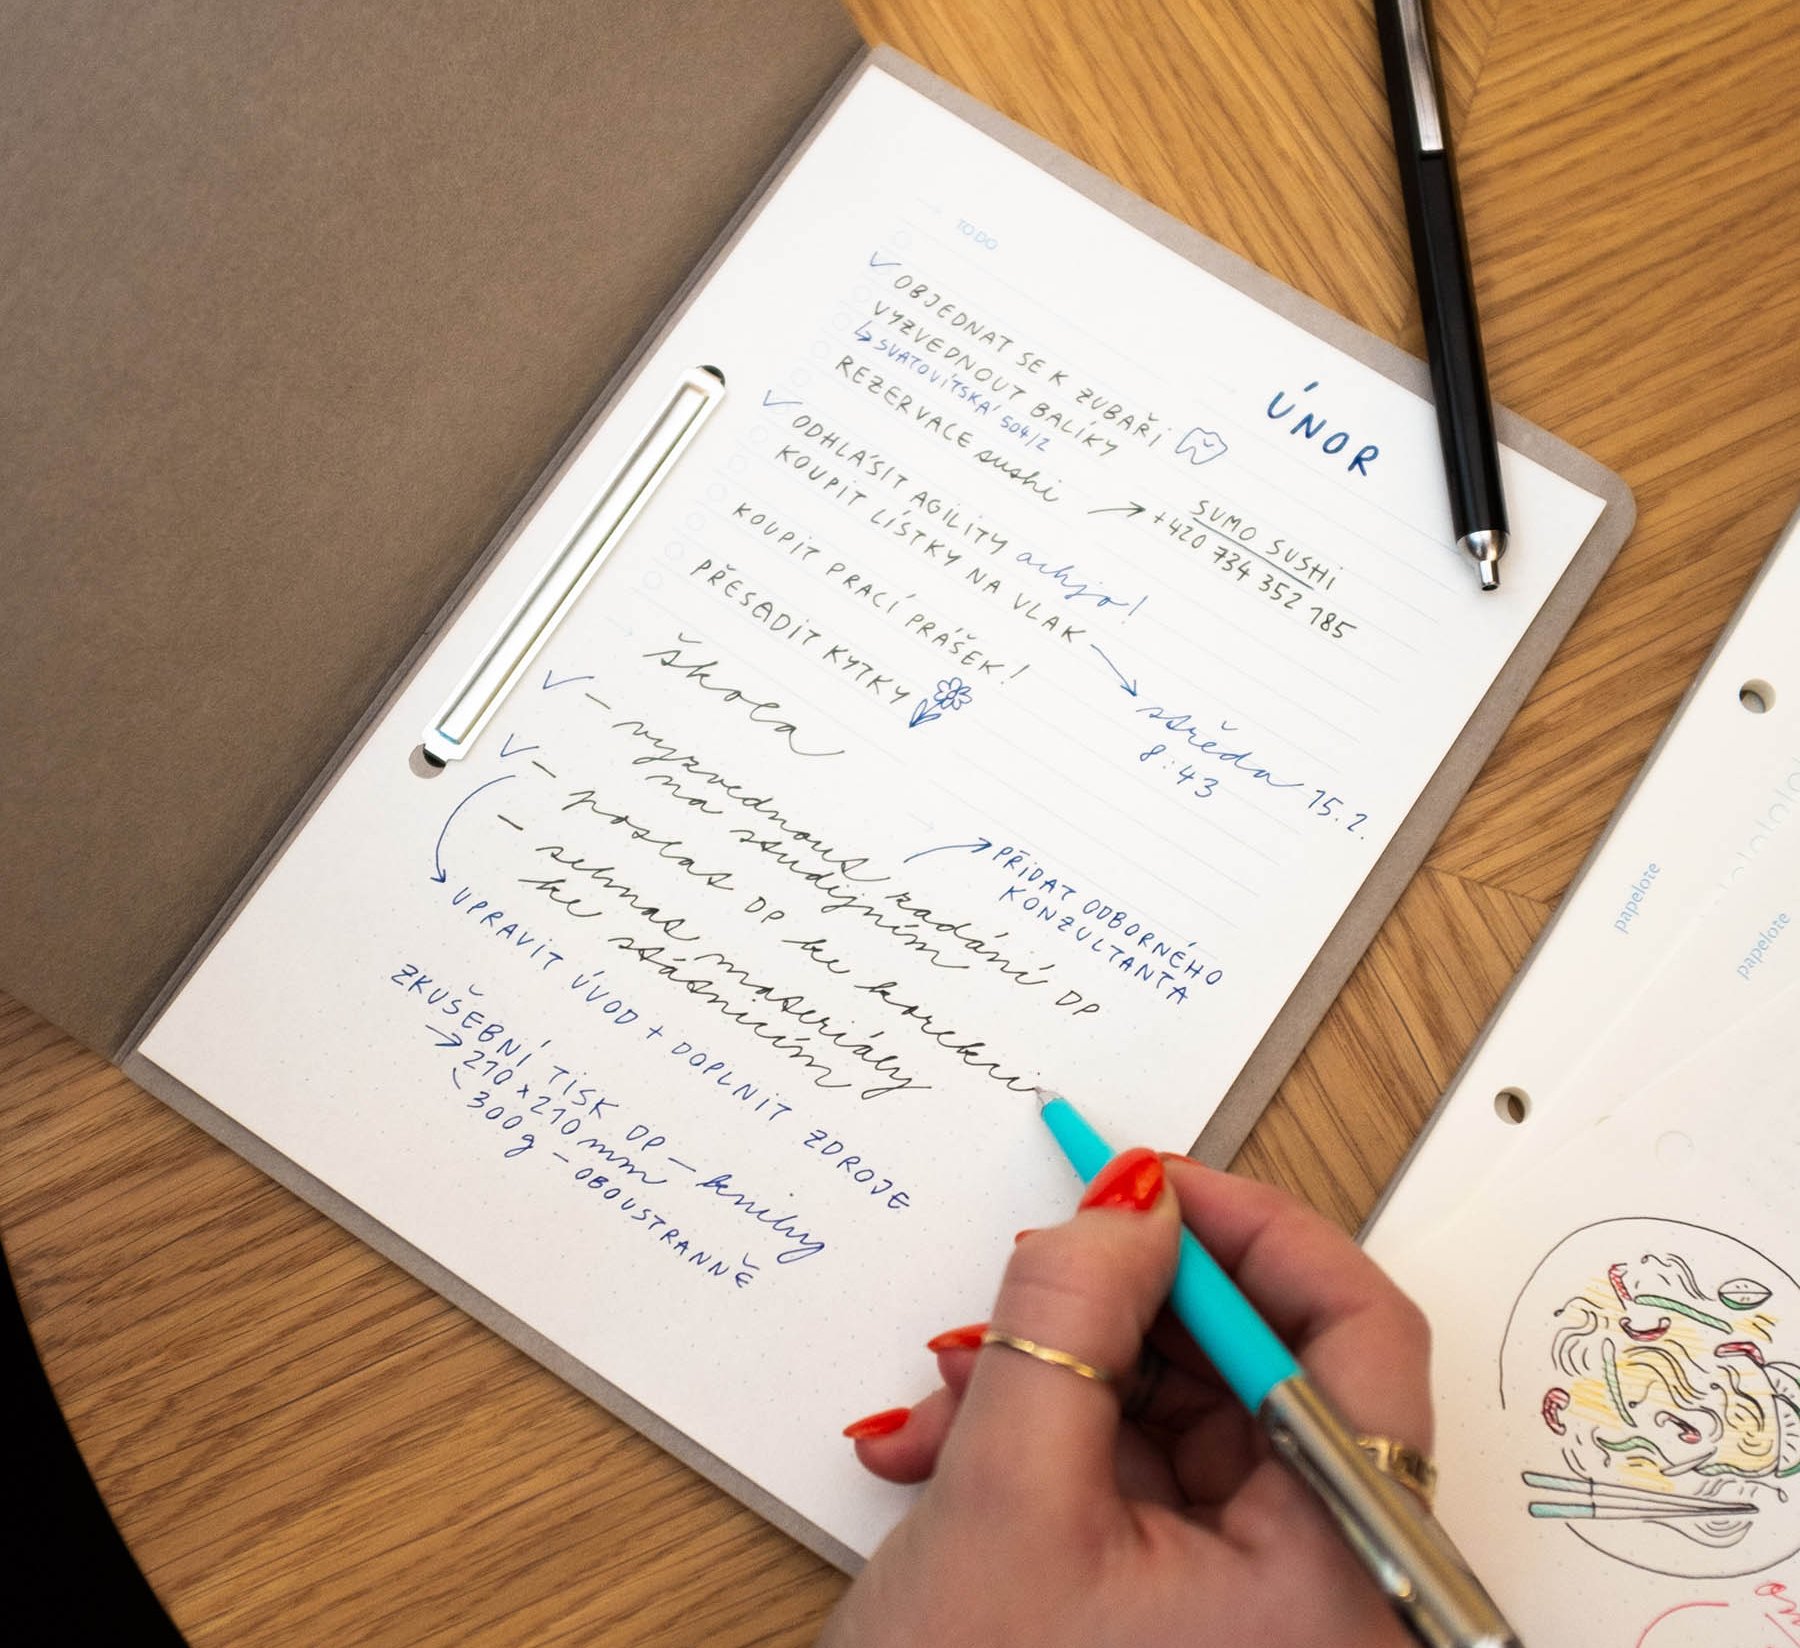 TO DO
ÚNOR
✓ OBJEDNAT SE K ZUBAŘI
VYZVEDNOUT BALÍKY
↳ SVATOVÍTSKÁ 504/2
REZERVACE sushi →
SUMO SUSHI
+420 734 352 185
✓ ODHLÁSIT AGILITY achjo!
KOUPIT LÍSTKY NA VLAK →
středa 15.2.
8:43
KOUPIT PRACÍ PRÁŠEK!
PŘESADIT KYTKY
škola
✓ – vyzvednout zadání DP
na studijním
→ PŘIDAT ODBORNÉHO
KONZULTANTA
✓ – poslat DP ke korekci
– sehnat materiály
ke státnicím
→ UPRAVIT ÚVOD + DOPLNIT ZDROJE
ZKUŠEBNÍ TISK DP – knihy
→ 210 x 210 mm
300g – OBOUSTRANNĚ
papelote
papelote